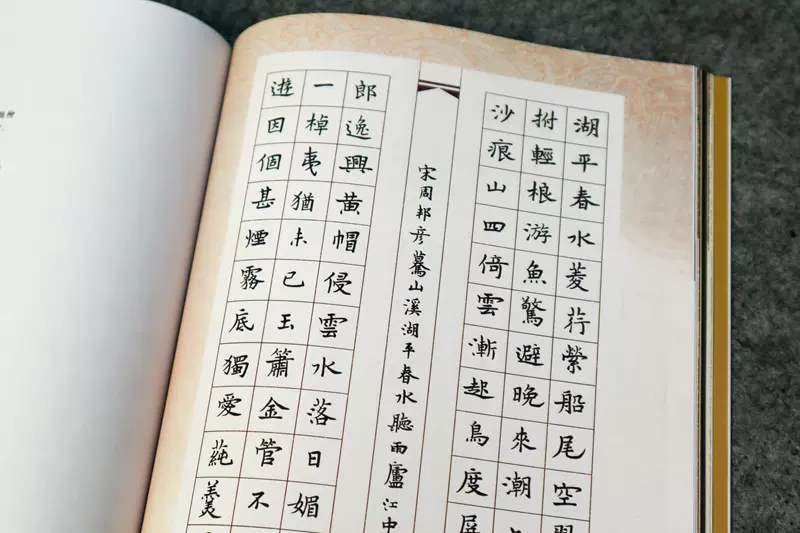 湖平春水菱荇縈船尾空翠
拊輕根游魚驚避晚來潮
沙痕山四倚雲漸起鳥度屏
宋周邦彥驀山溪湖平春水聽雨廬江中
郎逸興黃帽侵雲水落日媚
一棹夷猶未已玉簫金管不
遊因個甚煙霧底獨愛蒓羹